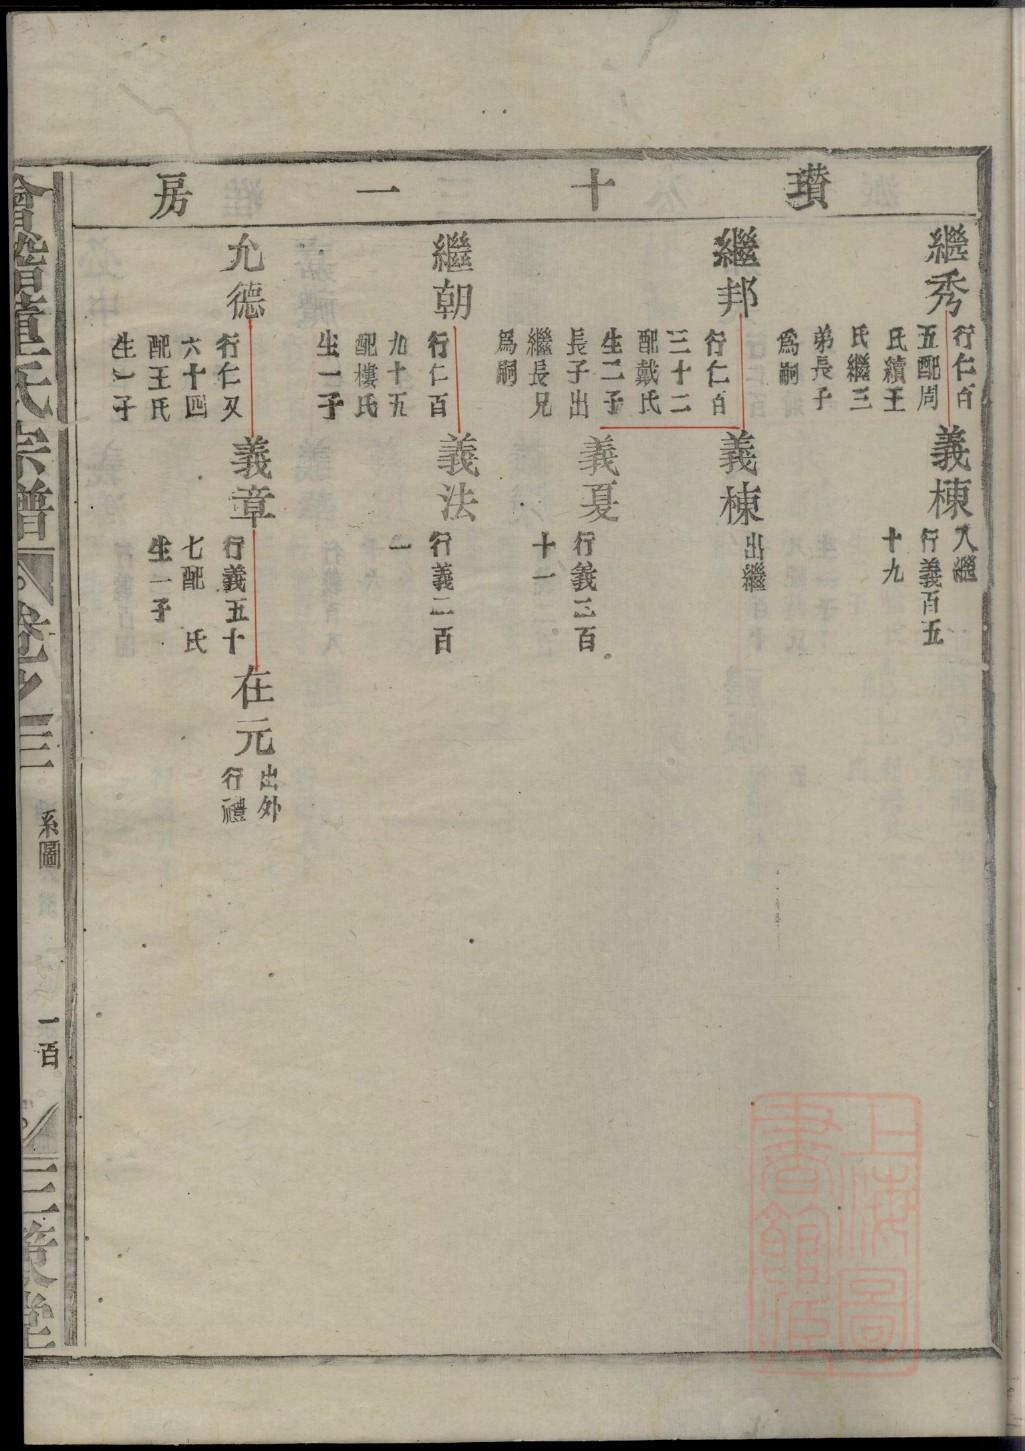 瓚十一房
繼秀
行仁百
五配周
氏續王
氏繼三
弟長子
爲嗣
義棟
入繼
行義百五
十九
繼邦
行仁百
三十二
配戴氏
生二子
長子出
繼長兄
爲嗣
義棟
出繼
義夏
行義二百
十一
繼朝
行仁百
九十五
配樓氏
生一子
義法
行義二百
一
允德
行仁又
六十四
配王氏
生一子
義章
行義五十
七配 氏
生一子
在元
出外
行禮
會稽董氏宗譜 卷之三 系圖 一百 三策堂
上海圖
書館藏